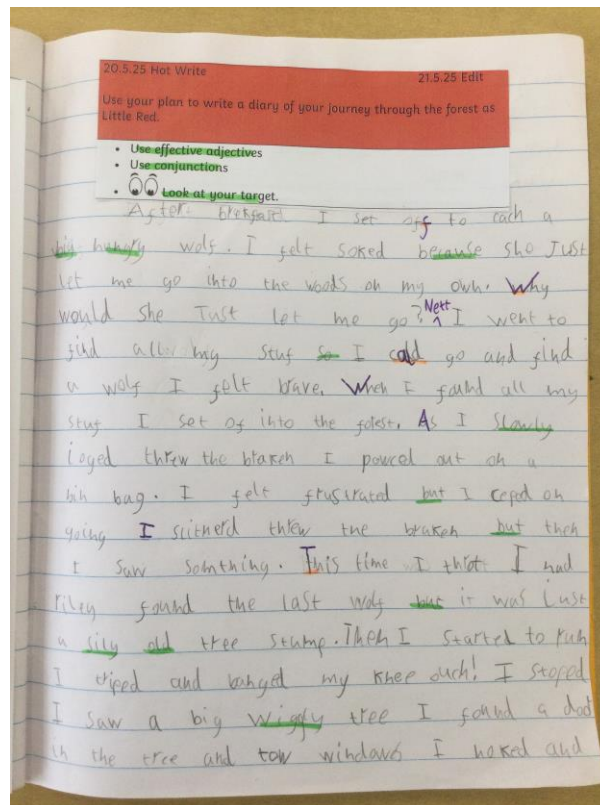 20.5.25 Hot Write 21.5.25 Edit
Use your plan to write a diary of your journey through the forest as
Little Red.
• Use effective adjectives
• Use conjunctions
• Look at your target.
After brekfast I set off to cach a
big hungry wolf. I felt soked because she Just
let me go into the woods on my own. Why
would she Just let me go? Nett I went to
find all my stuf so I cold go and find
a wolf I felt brave. When I found all my
stuf I set of into the forest. As I slowly
joged threw the braken I powced out on a
bin bag. I felt frusrated but I ceped on
going I slitherd threw the braken but then
I saw somthing. This time I thot I had
riley found the last wolf but it was Just
a sily old tree stump. Then I started to run
I triped and banged my knee ouch! I stoped
I saw a big wiggly tree I found a dod
in the tree and tow windows I noked and